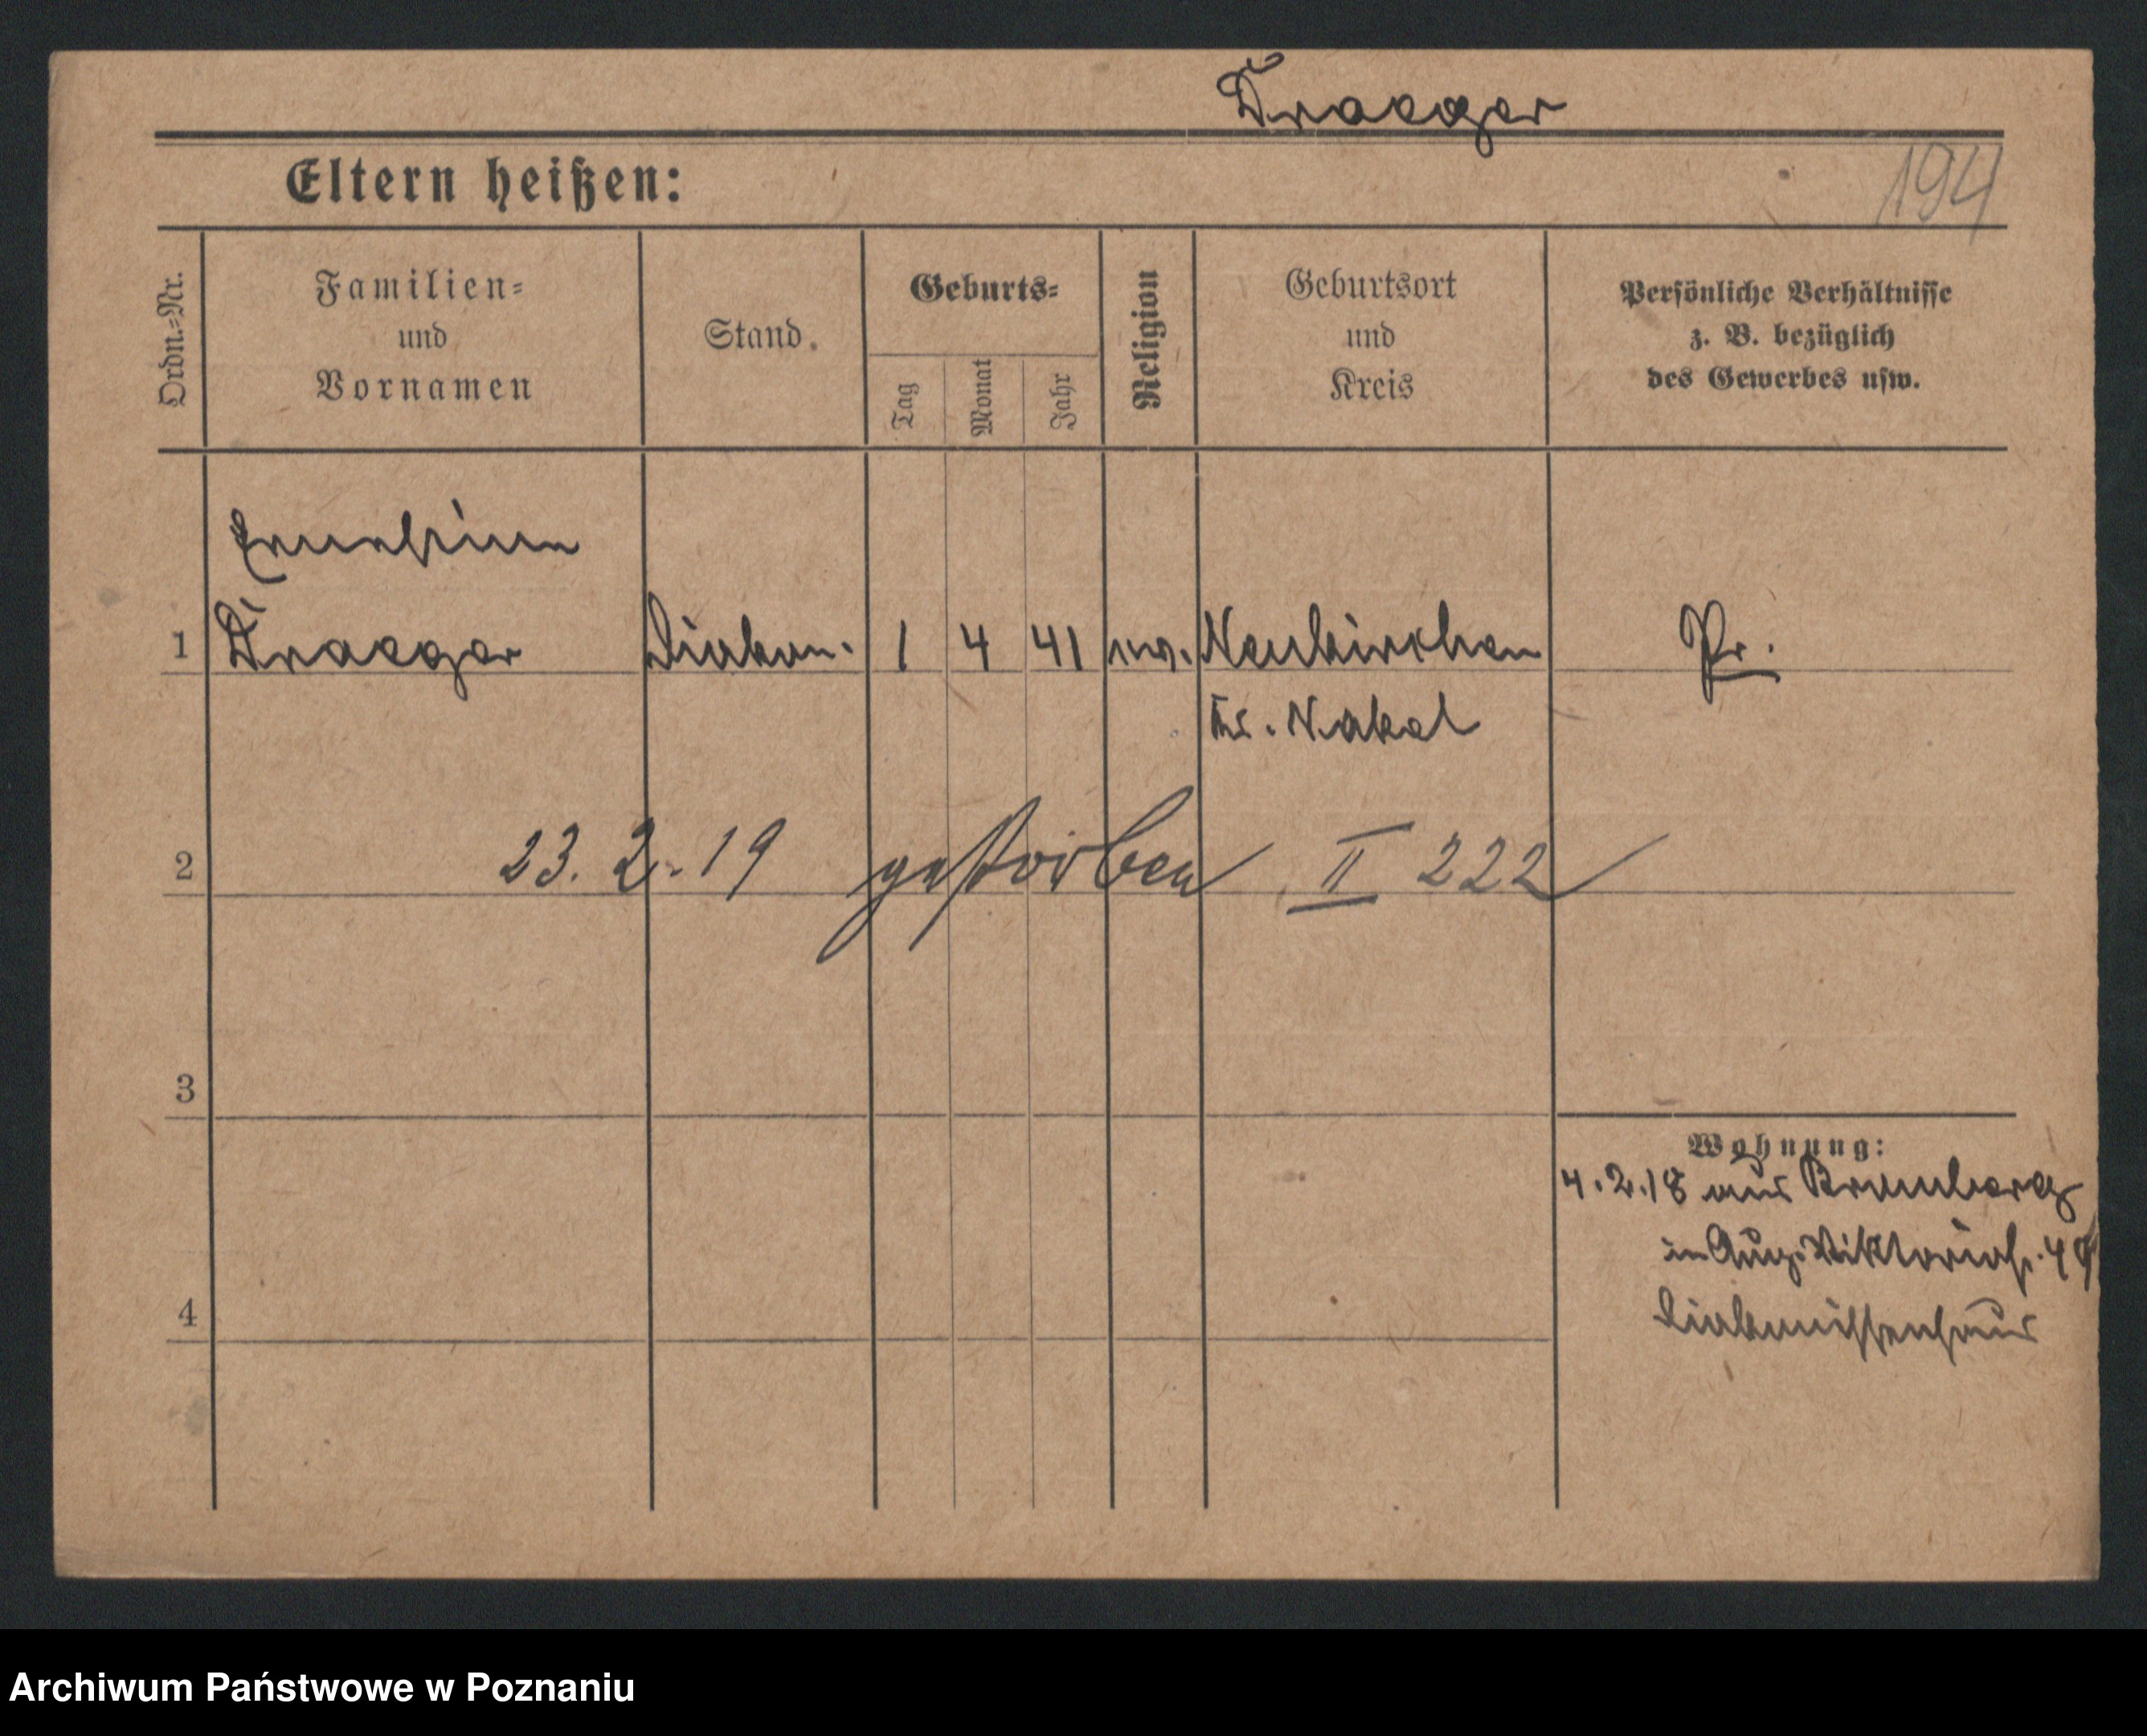 Draeger
Eltern heißen:
194
Ordn.-Nr.
Familien- und Vornamen
Stand.
Geburts-
Tag
Monat
Jahr
Religion
Geburtsort und Kreis
Persönliche Verhältnisse
z. B. bezüglich
des Gewerbes usw.
Ernestine
1 Draeger Diakon. 1 4 41 ev. Neukirchen Pr.
Kr. Nakel
2 23.2.19 gestorben II 222
3
Wohnung:
4.2.18 aus Bromberg
in Aug. Viktoriastr. 49
4 Diakonissenhaus
Archiwum Państwowe w Poznaniu